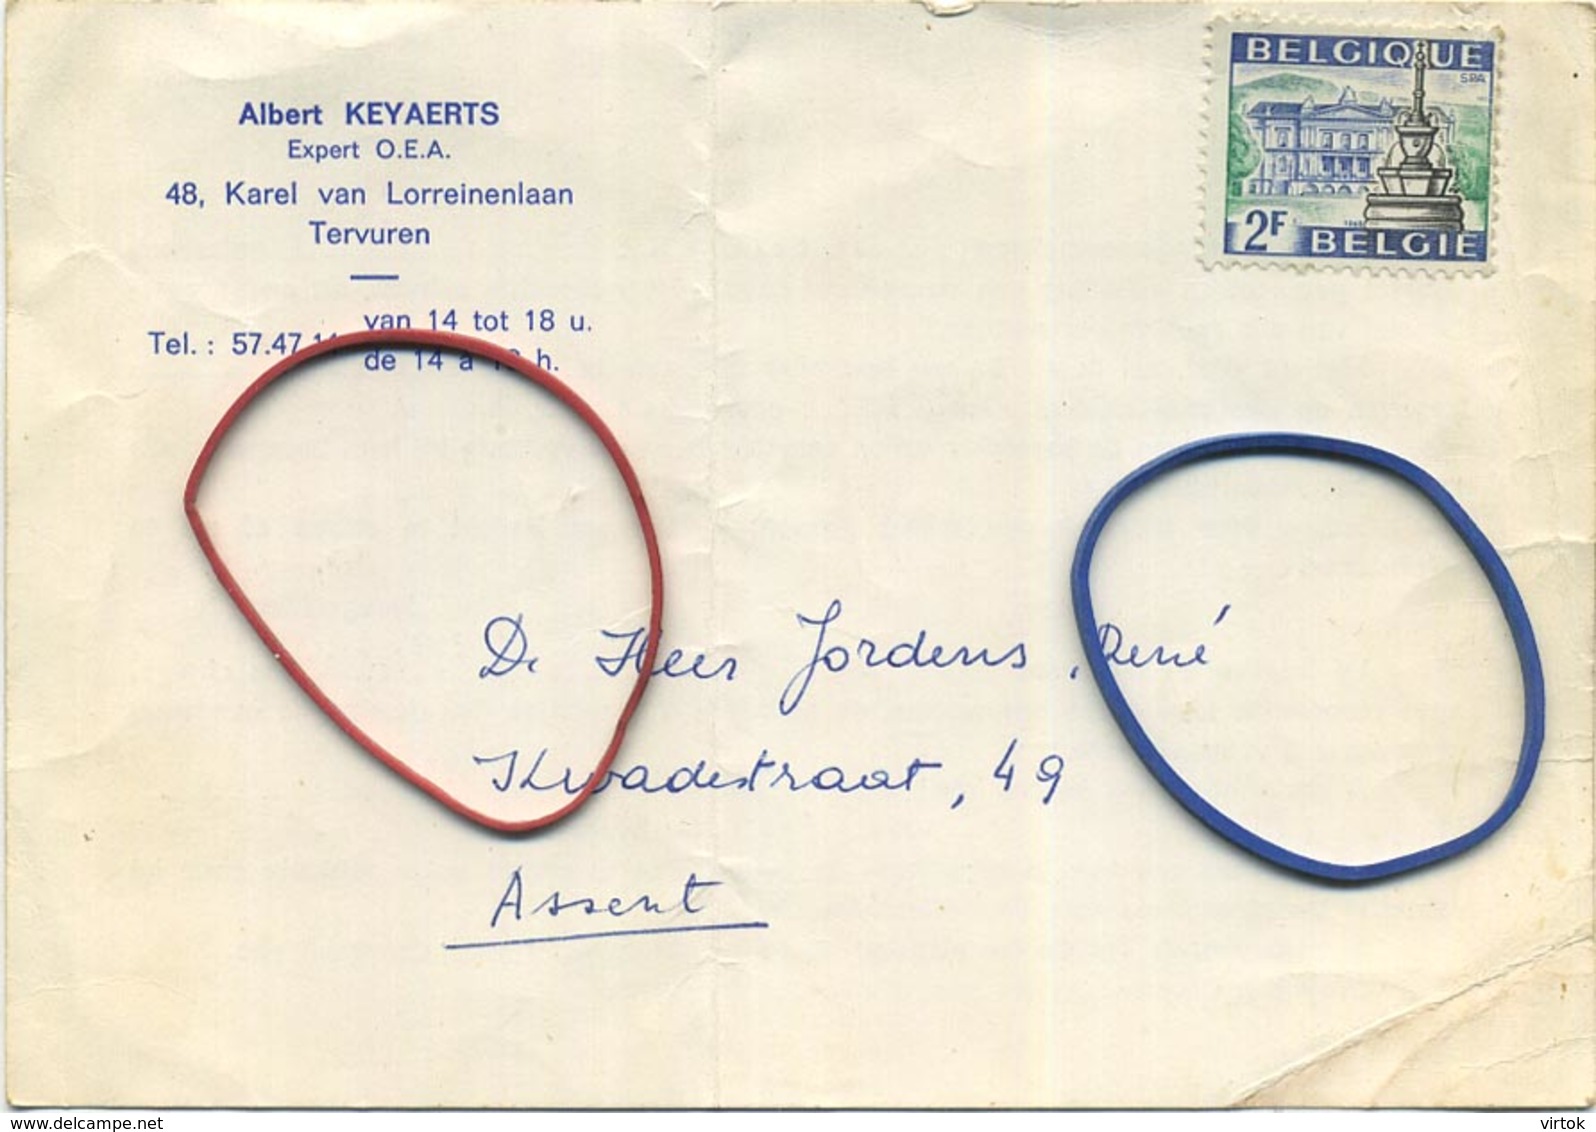 Albert KEYAERTS
Expert O.E.A.
48, Karel van Lorreinenlaan
Tervuren
van 14 tot 18 u.
Tel. : 57.47
de 14 à h.
BELGIQUE
SPA
2F
BELGIE
De Heer Jordens, René
Kwadestraat, 49
Assent
delcampe.net
virtok